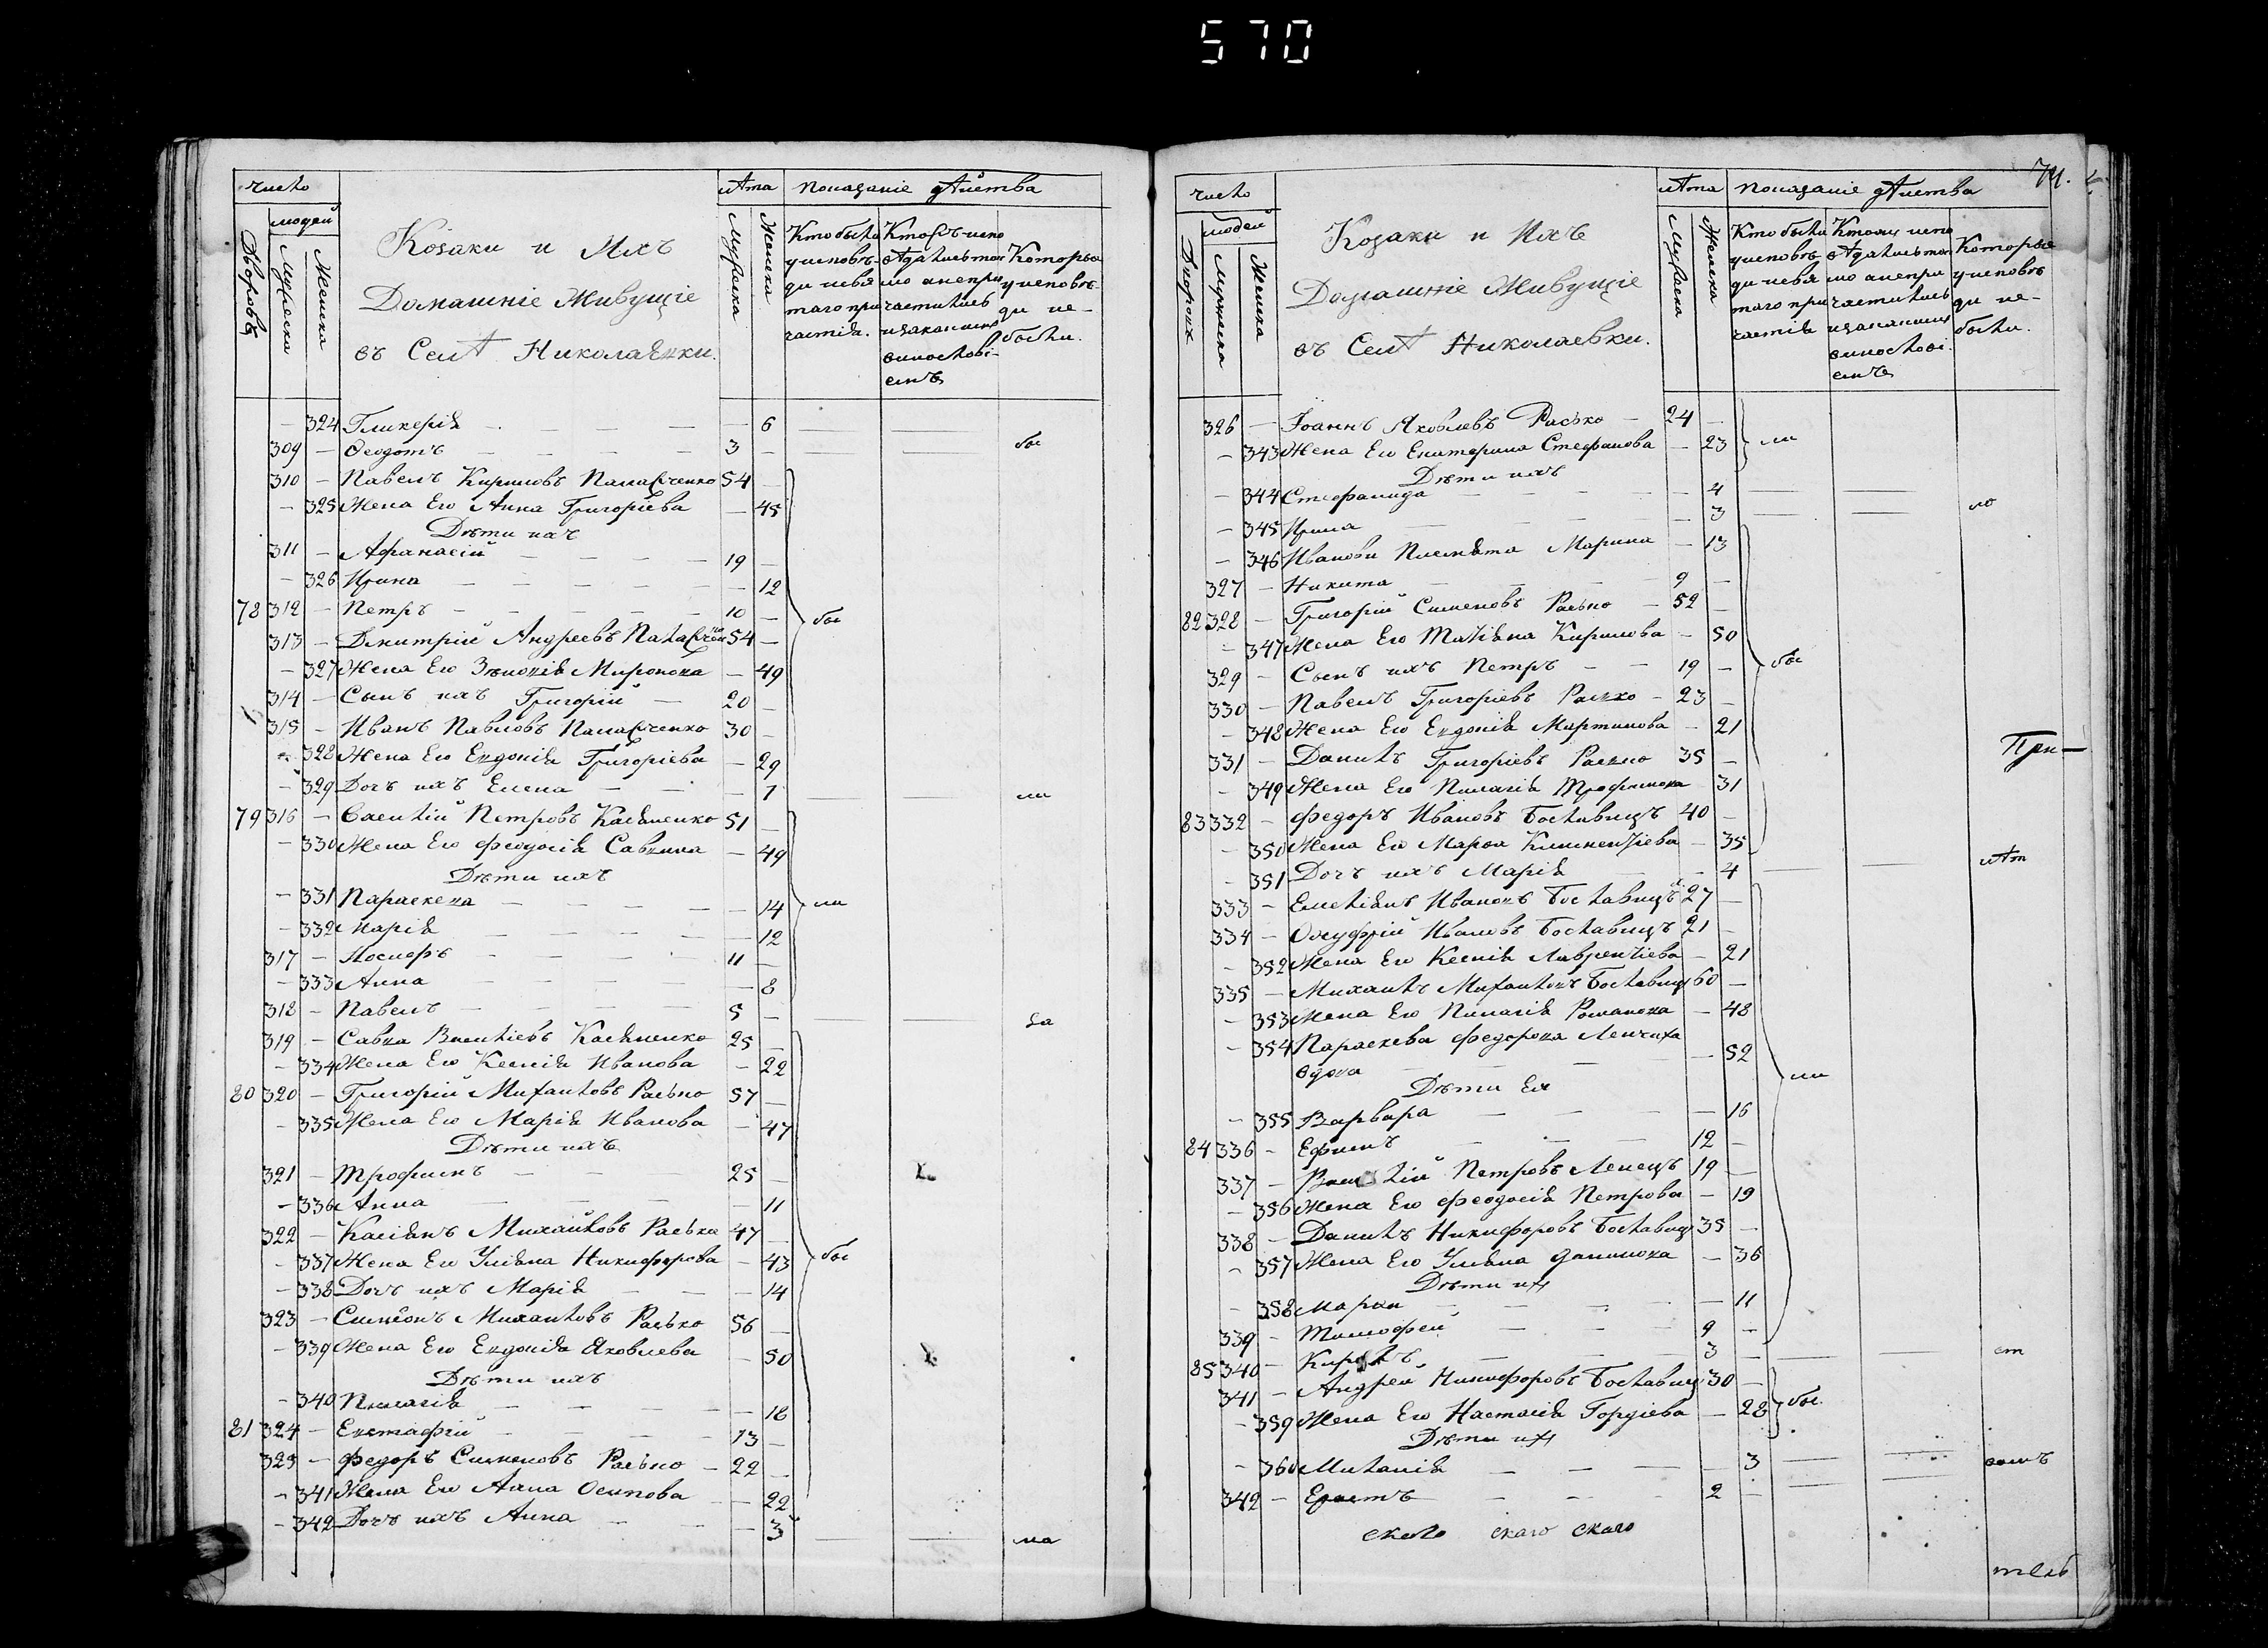 570
число
людей
Дворовъ
Мужеска
Женска
Козаки и Ихъ
Домашніе Живущіе
въ Селѣ Николаевки.
лѣта
Мужеска
Женска
Показаніе дѣйства
Кто были
у исповѣ-
ди и свя
таго при
частія.
исповѣдались
Которые
у исповѣ
ди не-
были.
– 324 Гликерія – – 6
309 – Ѳеодотъ – 3 – бы
310 – Павелъ Кириловъ 54 –
– 325 Жена Его Анна Григоріева – 45
Дѣти ихъ
311 – Афанасій – 19 –
– 326 Ирина – – 12
78 312 – Петръ – 10 – бы
313 – Дмитрій Андреевъ 54 –
– 327 Жена Его Миронова – 49
314 – Сынъ ихъ Григорій – 20 –
315 – Иванъ Павловъ 30 –
– 328 Жена Его Евдокія Григоріева – 29
– 329 Дочь ихъ Елена – – 1 ли
79 316 – Василій Петровъ Касяненко 51 –
– 330 Жена Его Феодосія Саввина – 49
Дѣти ихъ
– 331 Параскева – – 14 ли
– 332 Марія – – 12
317 – Іосифъ – 11 –
– 333 Анна – – 8
318 – Павелъ – 5 – за
319 – Савва Василіевъ Касяненко 25 –
– 334 Жена Его Ксенія Иванова – 22
80 320 – Григорій Михаиловъ Расько 57 –
– 335 Жена Его Марія Иванова – 47
Дѣти ихъ
321 – Трофимъ – 25 –
– 336 Анна – – 11
322 – Касіянъ Михайловъ Расько 47 –
– 337 Жена Его Уліяна Никифорова – 43 бы
– 338 Дочь ихъ Марія – – 14
323 – Симеонъ Михаиловъ Расько 56 –
– 339 Жена Его Евдокія Яковлева – 50
Дѣти ихъ
– 340 Пелагія – – 18
81 324 – Евстафій – 13 –
325 – Федоръ Сименовъ Расько – 22 –
– 341 Жена Его Анна Осипова – 22
– 342 Дочь ихъ Анна – – 3 на
74.
число
людей
Дворовъ
Мужеска
Женска
Козаки и Ихъ
Домашніе Живущіе
въ Селѣ Николаевки.
лѣта
Мужеска
Женска
Показаніе дѣйства
Кто были
у исповѣ
ди и свя
таго при
частія
Которые
у исповѣ
ди не-
были.
326 – Іоаннъ Яковлевъ Расько – 24 –
– 343 Жена Его Екатерина Стефанова – 23 ли
Дѣти ихъ
– 344 Стефанида – – 4
– 345 Ирина – – 3 ло
– 346 Иванови Племята Марина – 13
327 – Никита – 9 –
82 328 – Григорій Сименовъ Расько – 52 –
– 347 Жена Его Татіяна Кирилова – 50
329 – Сынъ ихъ Петръ – 19 – бы
330 – Павелъ Григоріевъ Расько – 23 –
– 348 Жена Его Евдокія Мартинова – 21
331 – Данилъ Григоріевъ Расько 35 – При–
– 349 Жена Его Пелагія Трофимова 31
83 332 – Федоръ Ивановъ Бославецъ 40 –
– 350 Жена Его Марфа Климентіева – 35
– 351 Дочь ихъ Марія – – 4 лѣт
333 – Емеліянъ Ивановъ Бославецъ 27 –
334 – Онуфрій Ивановъ Бославецъ 21 –
– 352 Жена Его Ксенія Лаврентіева – 21
335 – Михаилъ Михаиловъ Бославец 60 –
– 353 Жена Его Пелагія Романова – 48
– 354 Параскева Федорова
вдова – 52 ли
Дѣти Ея
– 355 Варвара – – 16
84 336 – Ефимъ – 12 –
337 – Василій Петровъ Ленецъ 19 –
– 356 Жена Его Феодосія Петрова – 19
338 – Данилъ Никифоровъ Бославец 35 –
– 357 Жена Его Уліяна Данилова – 36
Дѣти их
– 358 Марія – – 11
339 – Тимофей – 9 –
85 340 – Кирилъ – 3 – ст
341 – Андрей Никифоровъ Бославец 30 –
– 359 Жена Его Настасія Гордіева – 28 бы.
Дѣти их
– 360 Миланія – – 3 вомъ
342 – Ерастъ – 2 –
сколо скаго скаго